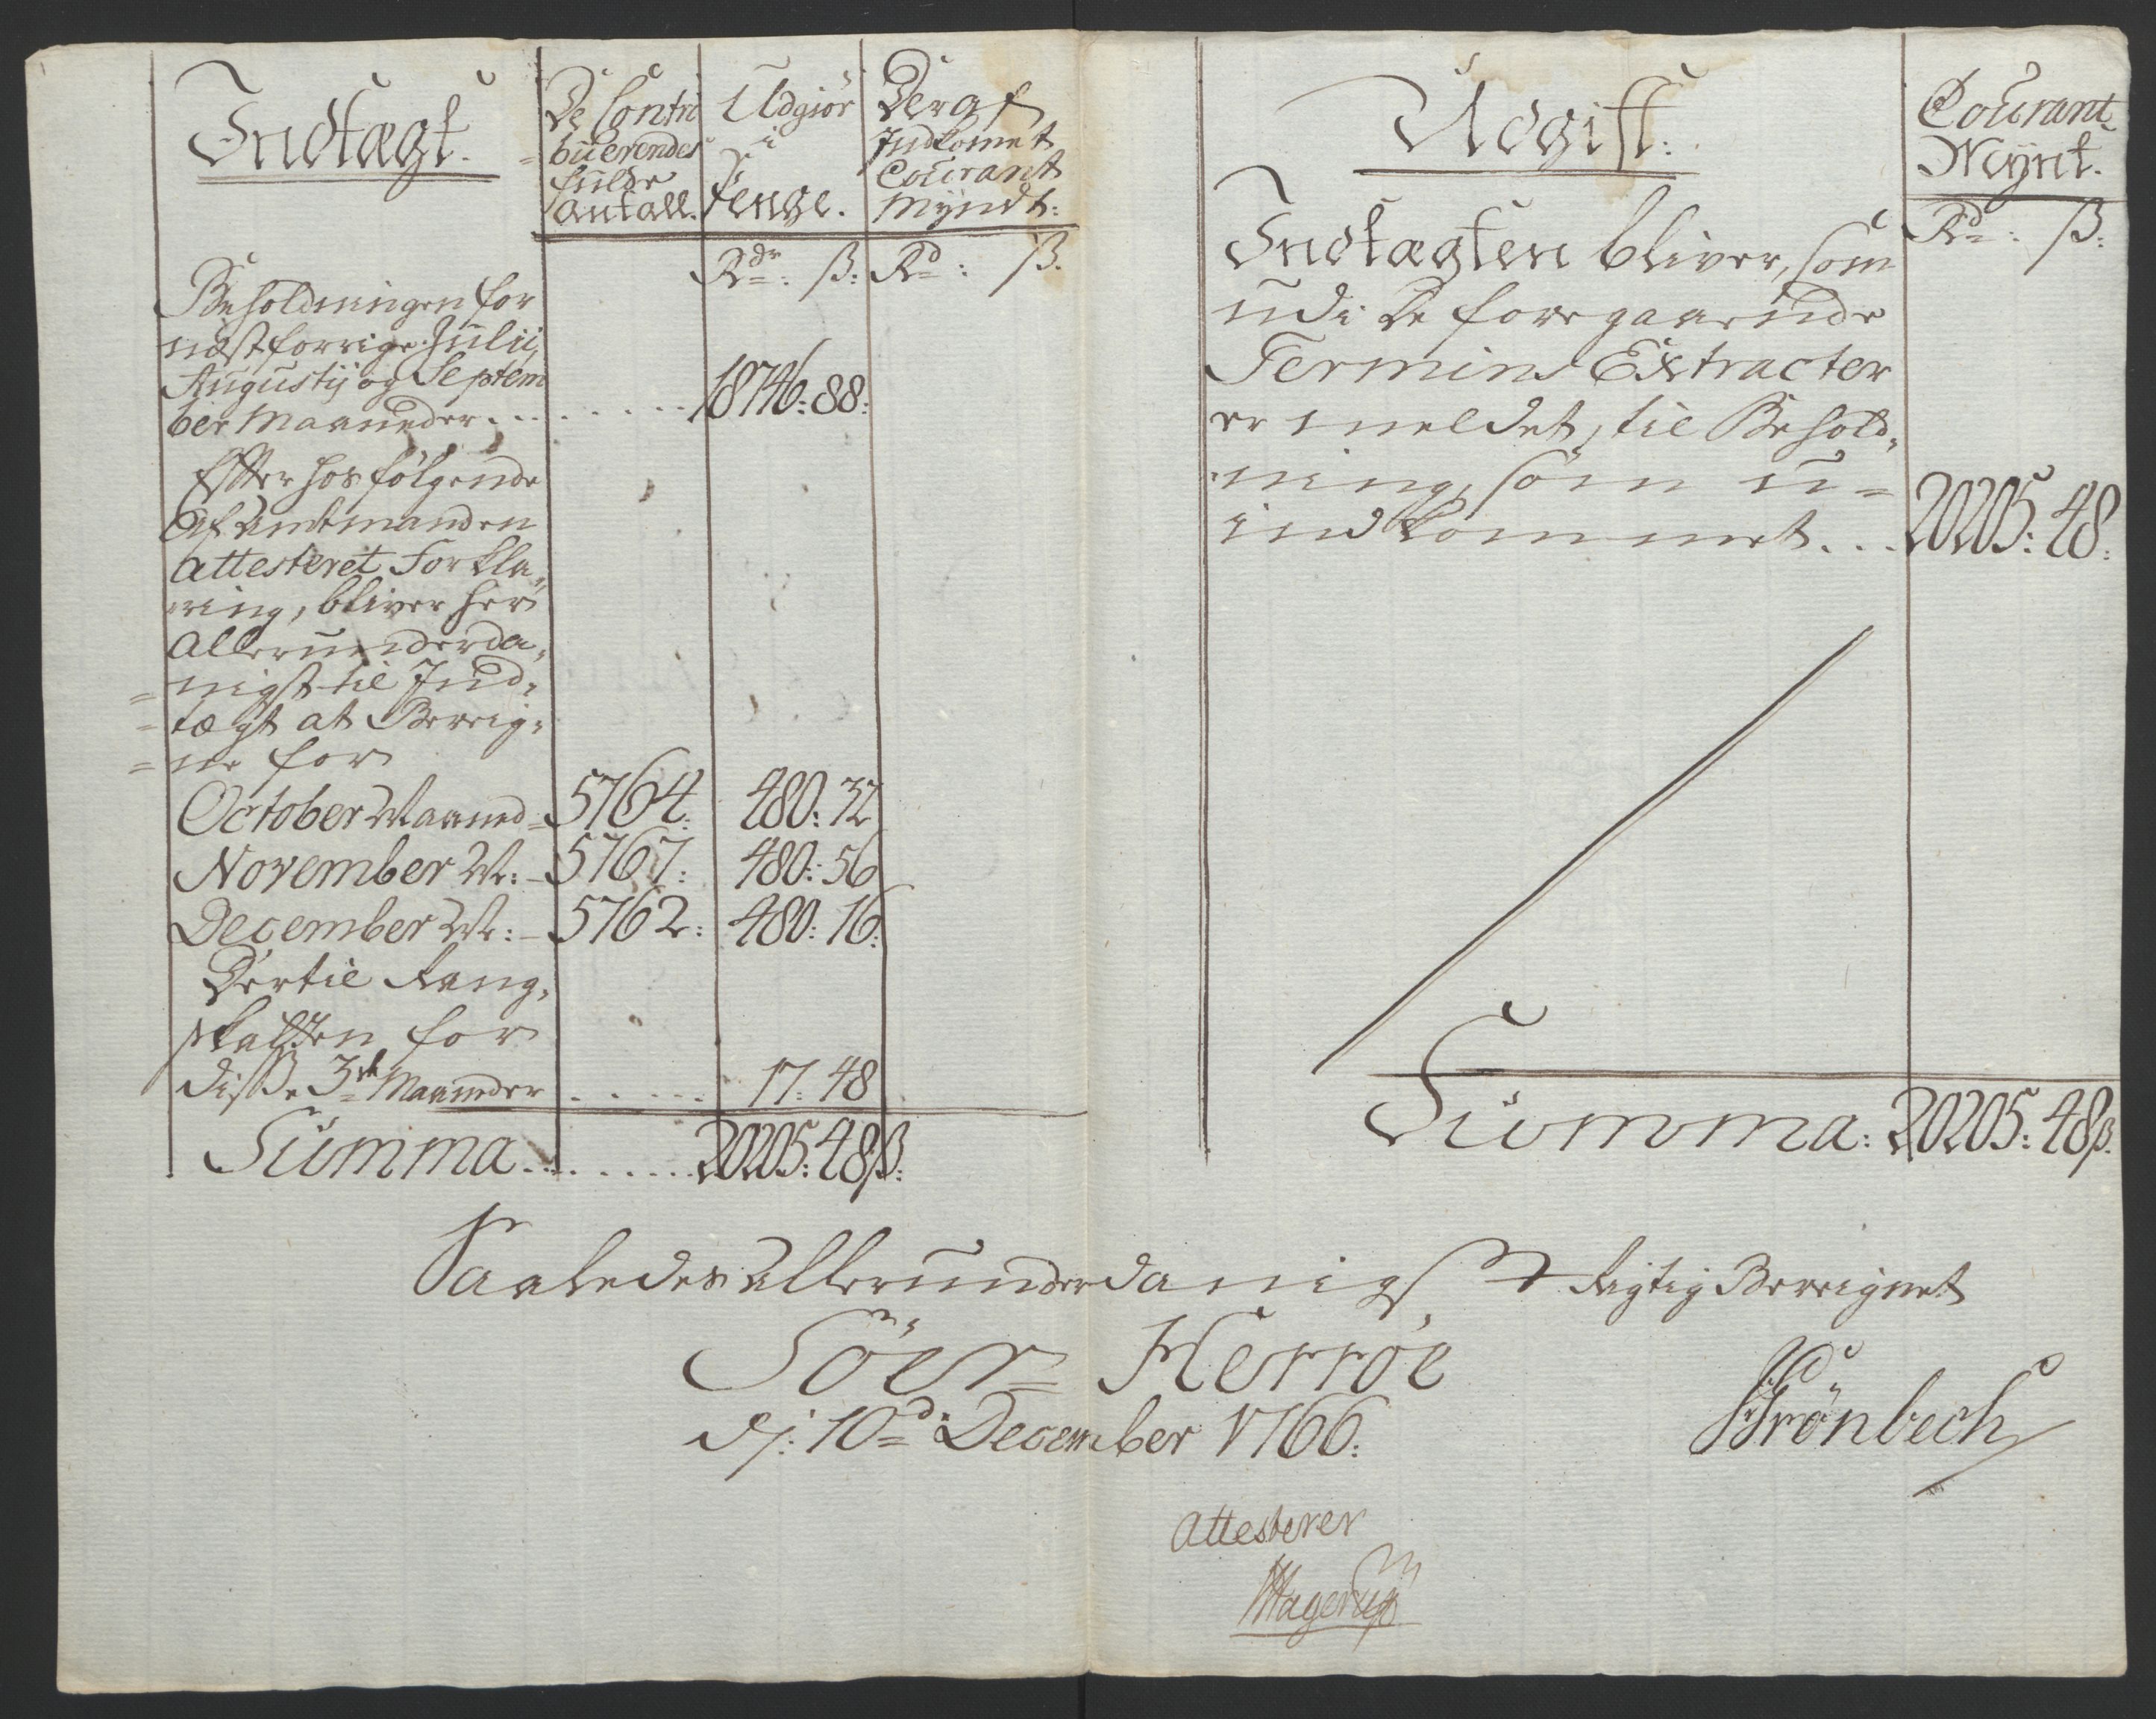 Indtægt.
De Contri
buerendes
fulde
antall.
Udgiør
i
Penge.
Deraf
Indkomet
Courant
Myndt:
Rdr: ß: Rd: ß.
Beholdningen for
næstforrige Julii,
Augustij og Septem
ber Maaneder . . . . . . . . . 18746: 88:
Efter hosfølgende
Af Amtmanden
attesteret Forkla,
ring, bliver her
allerunderda,
= nigst til Ind,
= tægt at Bereig,
= ne for
October Maaned = 5764: 480: 32
November M: - 5767: 480: 56
December M: - 5762: 480: 16:
Dertil Rang,
skatten for
disse 3de Maaneder . . . . . . 17: 48
Summa . . . . . . . . 20205: 48ß:
Udgift:
Courant
Mÿnt.
Rd: ß:
Indtægten bliver, som
udi de foregaaende
Termins Extracter
er meldet, til Behold,
ning, som u =
indkommet . . . 20205: 48:
Summa: 20205: 48ß.
Saaledes allerunderdanigst Rigtig Bereignet
Söer Herröe
dj: 10d: December 1766:
Grönbech
Attesterer
Hagerup